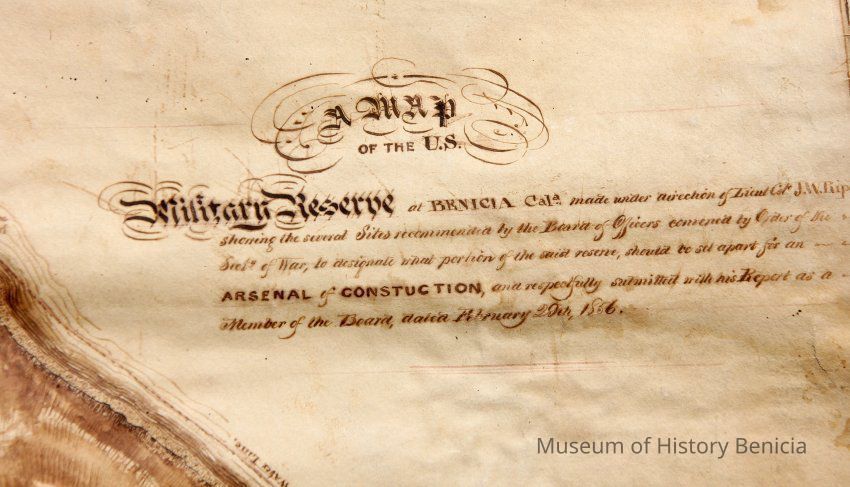 A MAP
OF THE U.S.
Military Reserve at BENICIA Cala. made under direction of Lieut Col. J.W. Rip
showing the several Sites recommended by the Board of Officers convened by Order of the
Secty. of War, to designate what portion of the said reserve, should be set apart for an
ARSENAL of CONSTUCTION, and respectfully submitted with his Report as a
Member of the Board, dated February 29th, 1856.
Water Line.
Museum of History Benicia